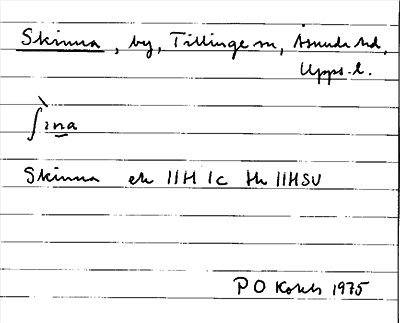 Skinna, by, Tillinge sn, Åsunda hd,
Upps. l.
ʃìna
Skinna ek 11H 1c tk 11HSV
P O 1975